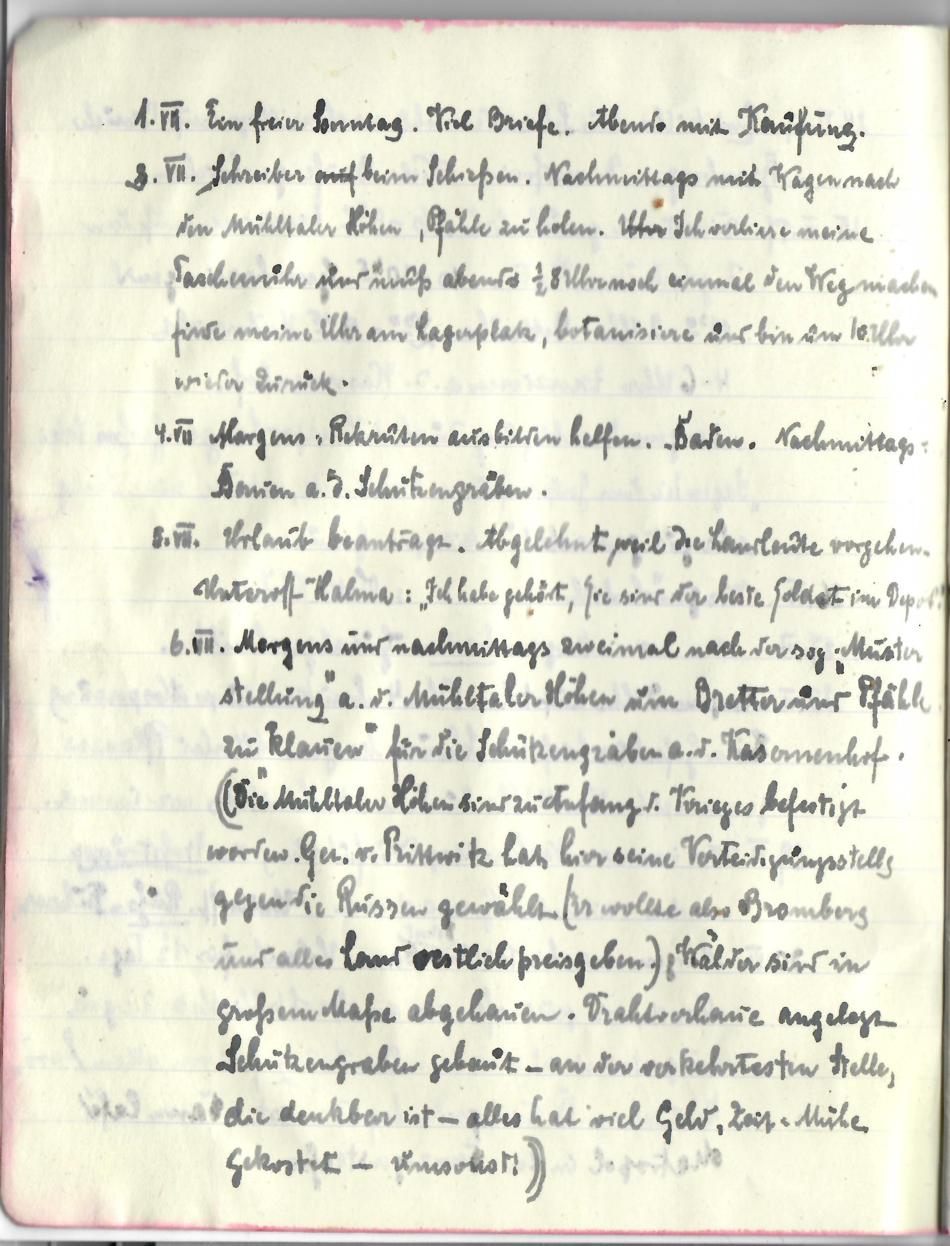 1. VII. Ein freier Sonntag. Viel Briefe. Abends mit Kaufung.
3. VII. Schreiber auf beim Schießen. Nachmittags mit Wagen nach
den Mühltaler Höhen, Pfähle zu holen. Uhr Ich verliere meine
Taschenuhr und muß abends ½8 Uhr noch einmal den Weg machen
finde meine Uhr am Lagerplatz, botanisiere und bin um 10 Uhr
wieder zurück.
4. VII Morgens: Rekruten ausbilden helfen. Baden. Nachmittags:
Bauen a. d. Schützengräben.
5. VII. Urlaub beantragt. Abgelehnt, weil die Landleute vorgehen.
Unteroff Halma: „Ich habe gehört, Sie sind der beste Soldat im Depot"
6. VII. Morgens und nachmittags zweimal nach der sog. „Muster
stellung" a. d. Mühltaler Höhen um Bretter und Pfähle
zu „klauen" für die Schützengräben a. d. Kasernenhof.
(Die Mühltaler Höhen sind zu Anfang d. Krieges befestigt
worden. Gen. v. Prittwitz hat hier seine Verteidigungsstellg
gegen die Russen gewählt. (Er wollte also Bromberg
und alles Land oestlich preisgeben.) Wälder sind in
großem Maße abgehauen. Drahtverhaue angelegt
Schützengräben gebaut – an der verkehrtesten Stelle,
die denkbar ist – alles hat viel Geld, Zeit u. Mühe
gekostet – umsonst!))